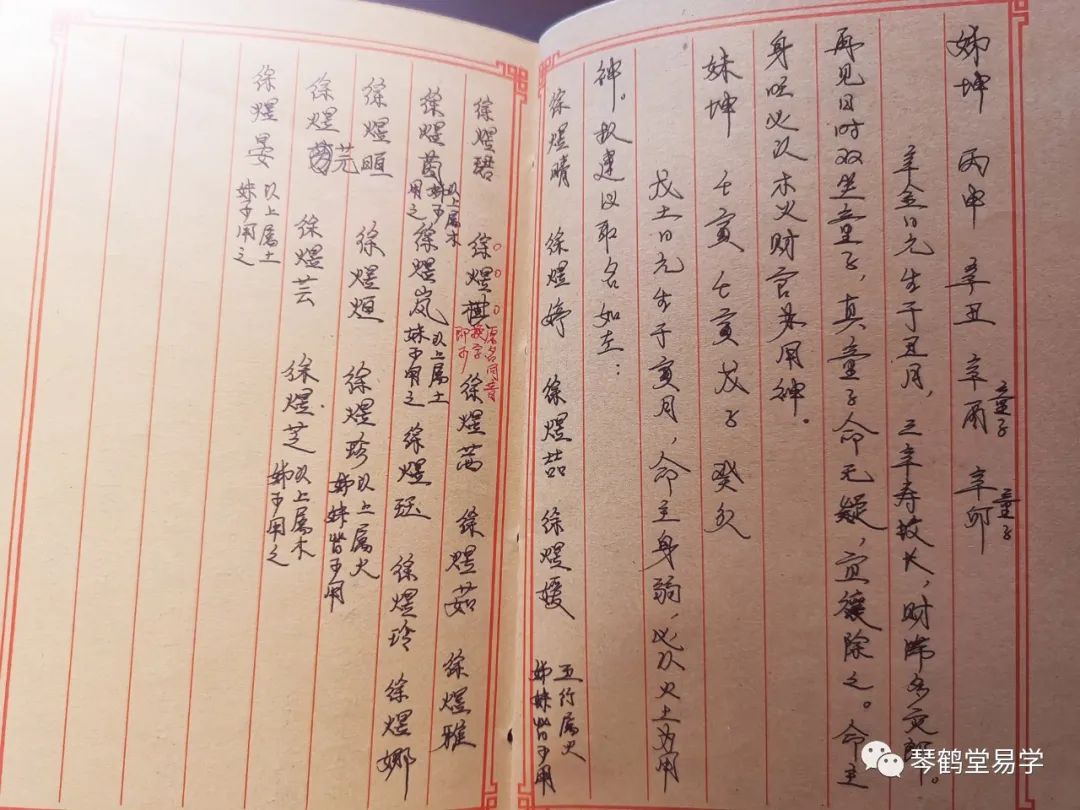 姊坤 丙申 辛丑 辛酉 辛卯
童子 童子
辛金日元生于丑月，三辛寿较长，财
再见日时双坐童子，真童子命无疑，宜禳除之。命主
身旺必以木火财官为用神。
妹坤 壬寅 壬寅 戊子 癸亥
戊土日元生于寅月，命主身弱，必以火土为用
神。故建议取名如左：
徐煜晴 徐煜婷 徐煜喆 徐煜媛 五行属火 姊妹皆可用
徐煜珺 徐煜棋 徐煜茜 徐煜茹 徐煜雅
原名同音 换字 即可
徐煜茵 以上属木 姊可用之 徐煜岚 以上属土 妹可用之 徐煜珏 徐煜玲 徐煜娜
徐煜晅 徐煜烜 徐煜珍 以上属火 姊妹皆可用
徐煜芫 徐煜芸 徐煜芝 以上属木 姊可用之
徐煜晏 以上属土 妹可用之
琴鹤堂易学